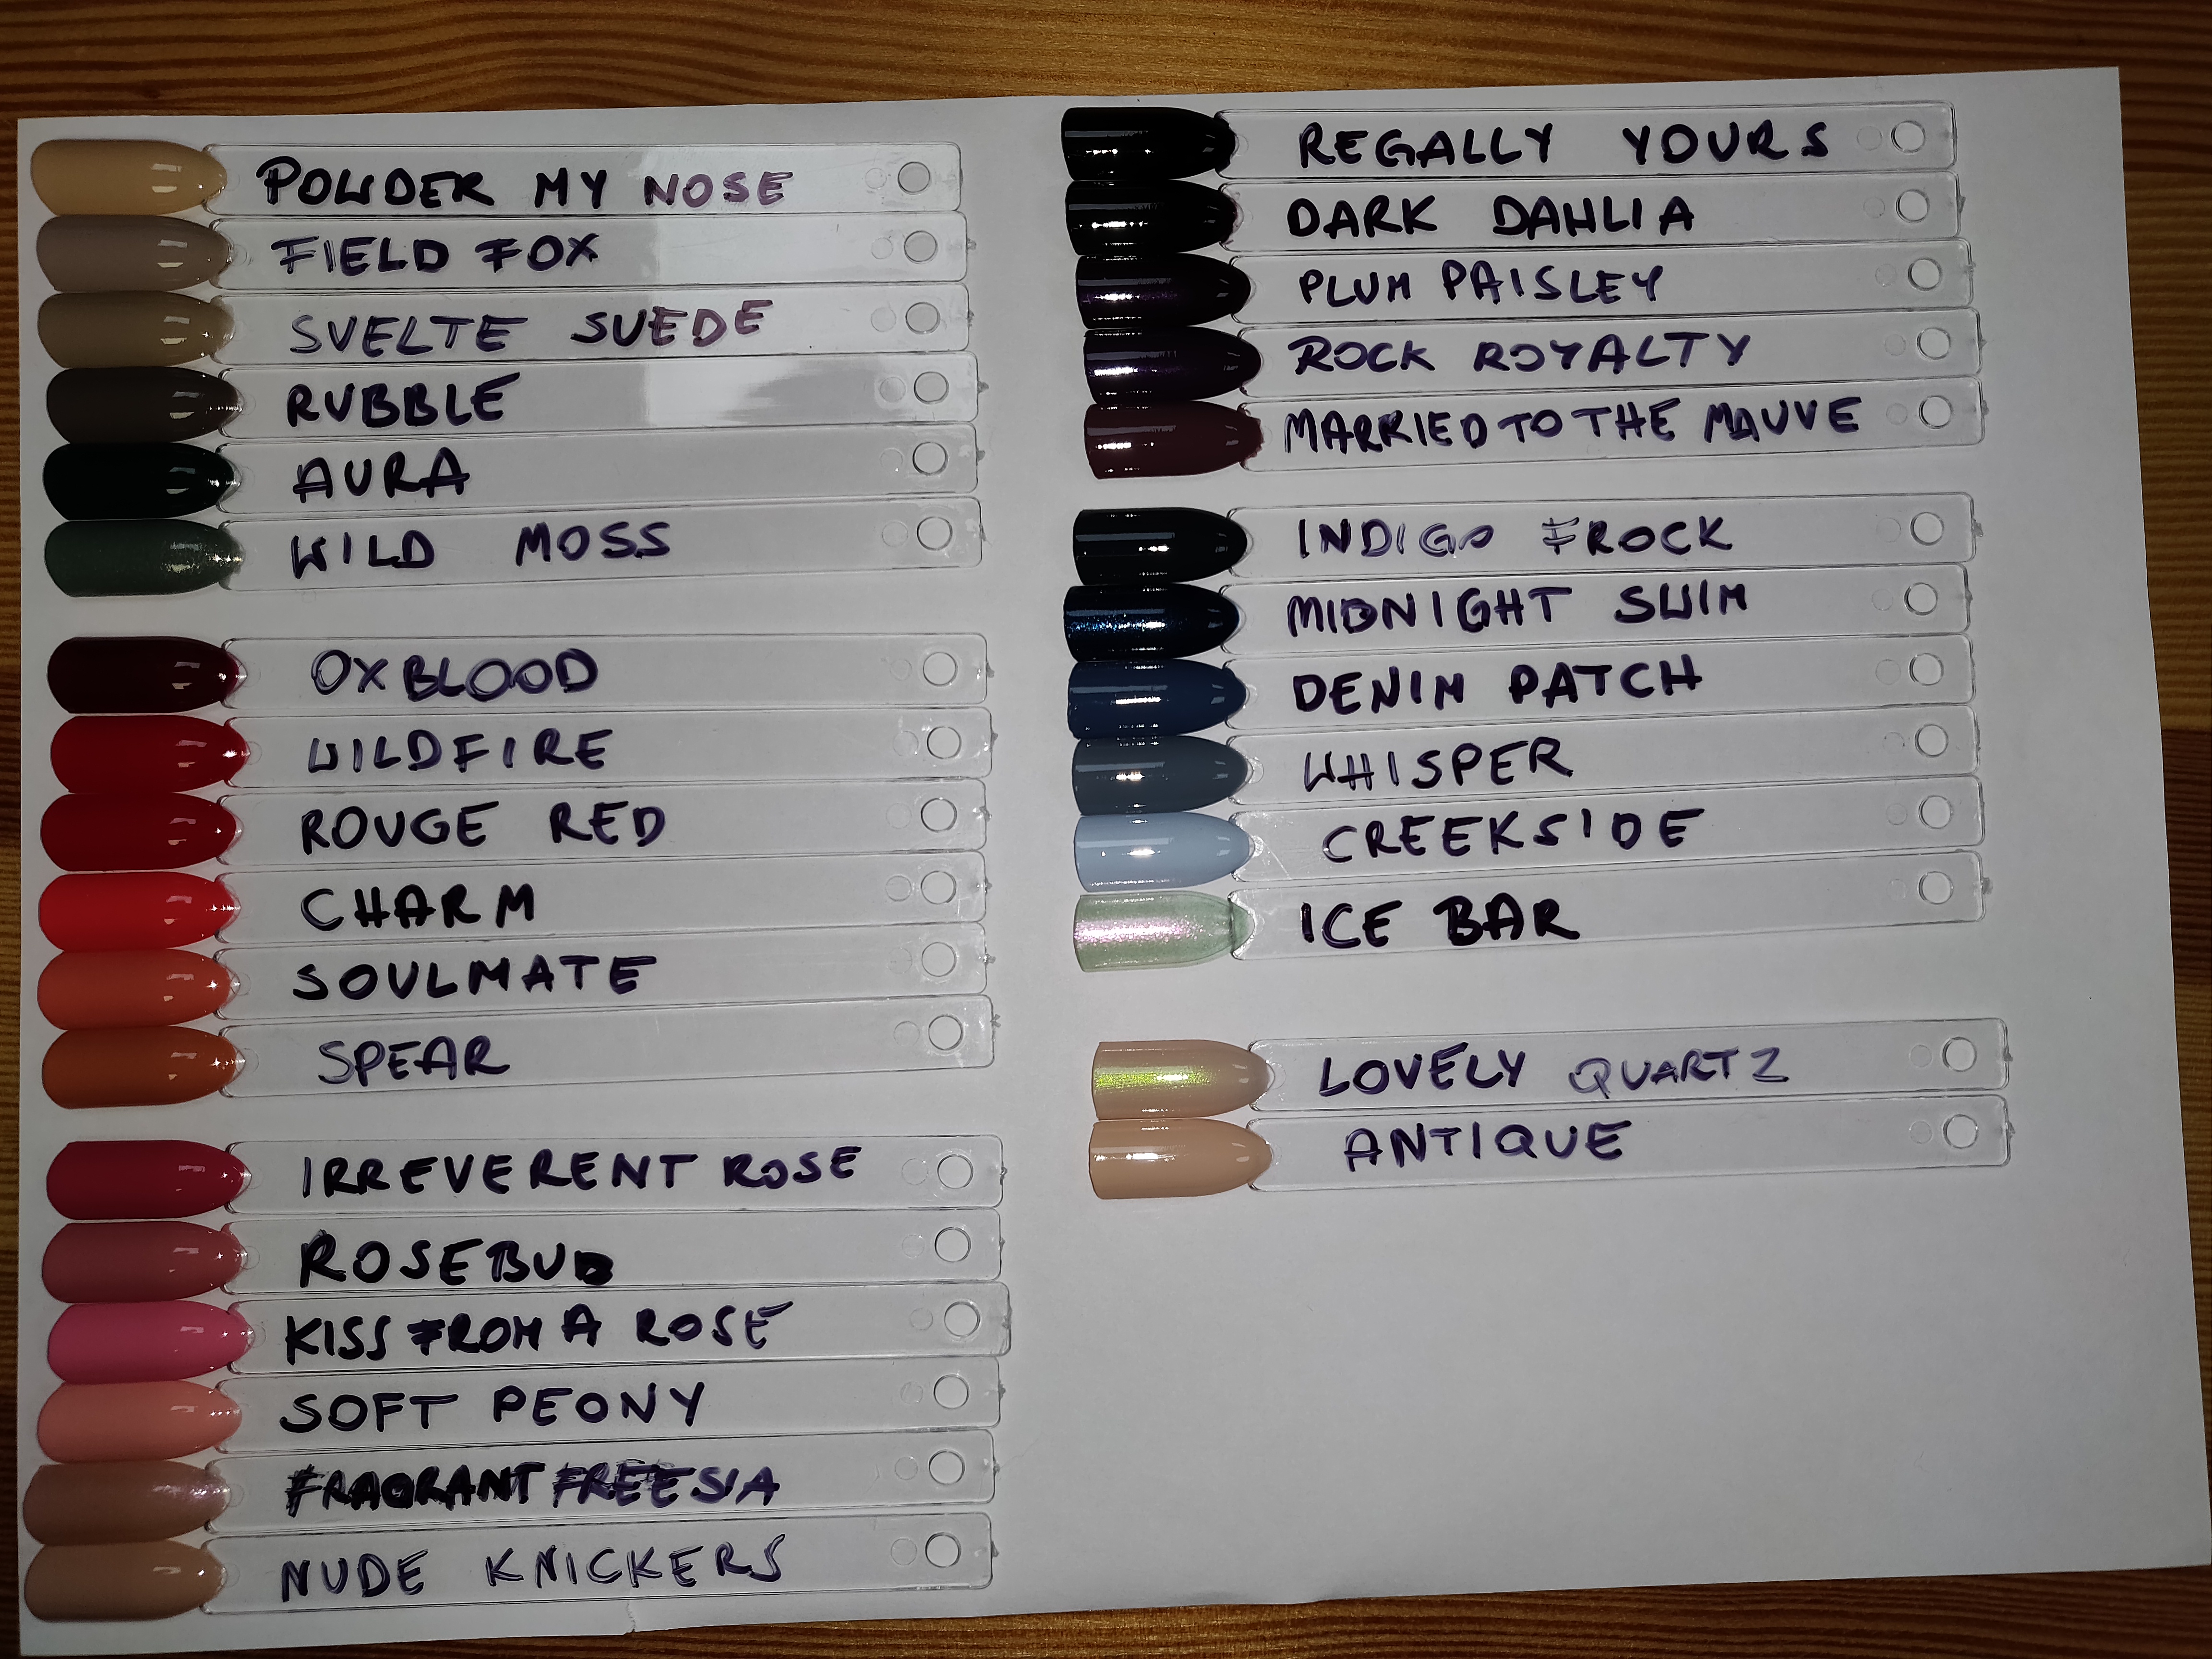 POWDER MY NOSE
FIELD FOX
SVELTE SUEDE
RUBBLE
AURA
WILD MOSS
OXBLOOD
WILDFIRE
ROUGE RED
CHARM
SOULMATE
SPEAR
IRREVERENT ROSE
ROSEBUD
KISS FROM A ROSE
SOFT PEONY
FRAGRANT FREESIA
NUDE KNICKERS
REGALLY YOURS
DARK DAHLIA
PLUM PAISLEY
ROCK ROYALTY
MARRIED TO THE MAUVE
INDIGO FROCK
MIDNIGHT SWIM
DENIM PATCH
WHISPER
CREEKSIDE
ICE BAR
LOVELY QUARTZ
ANTIQUE